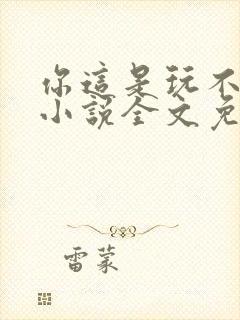 你這是玩不
小說全文免
雷蒙